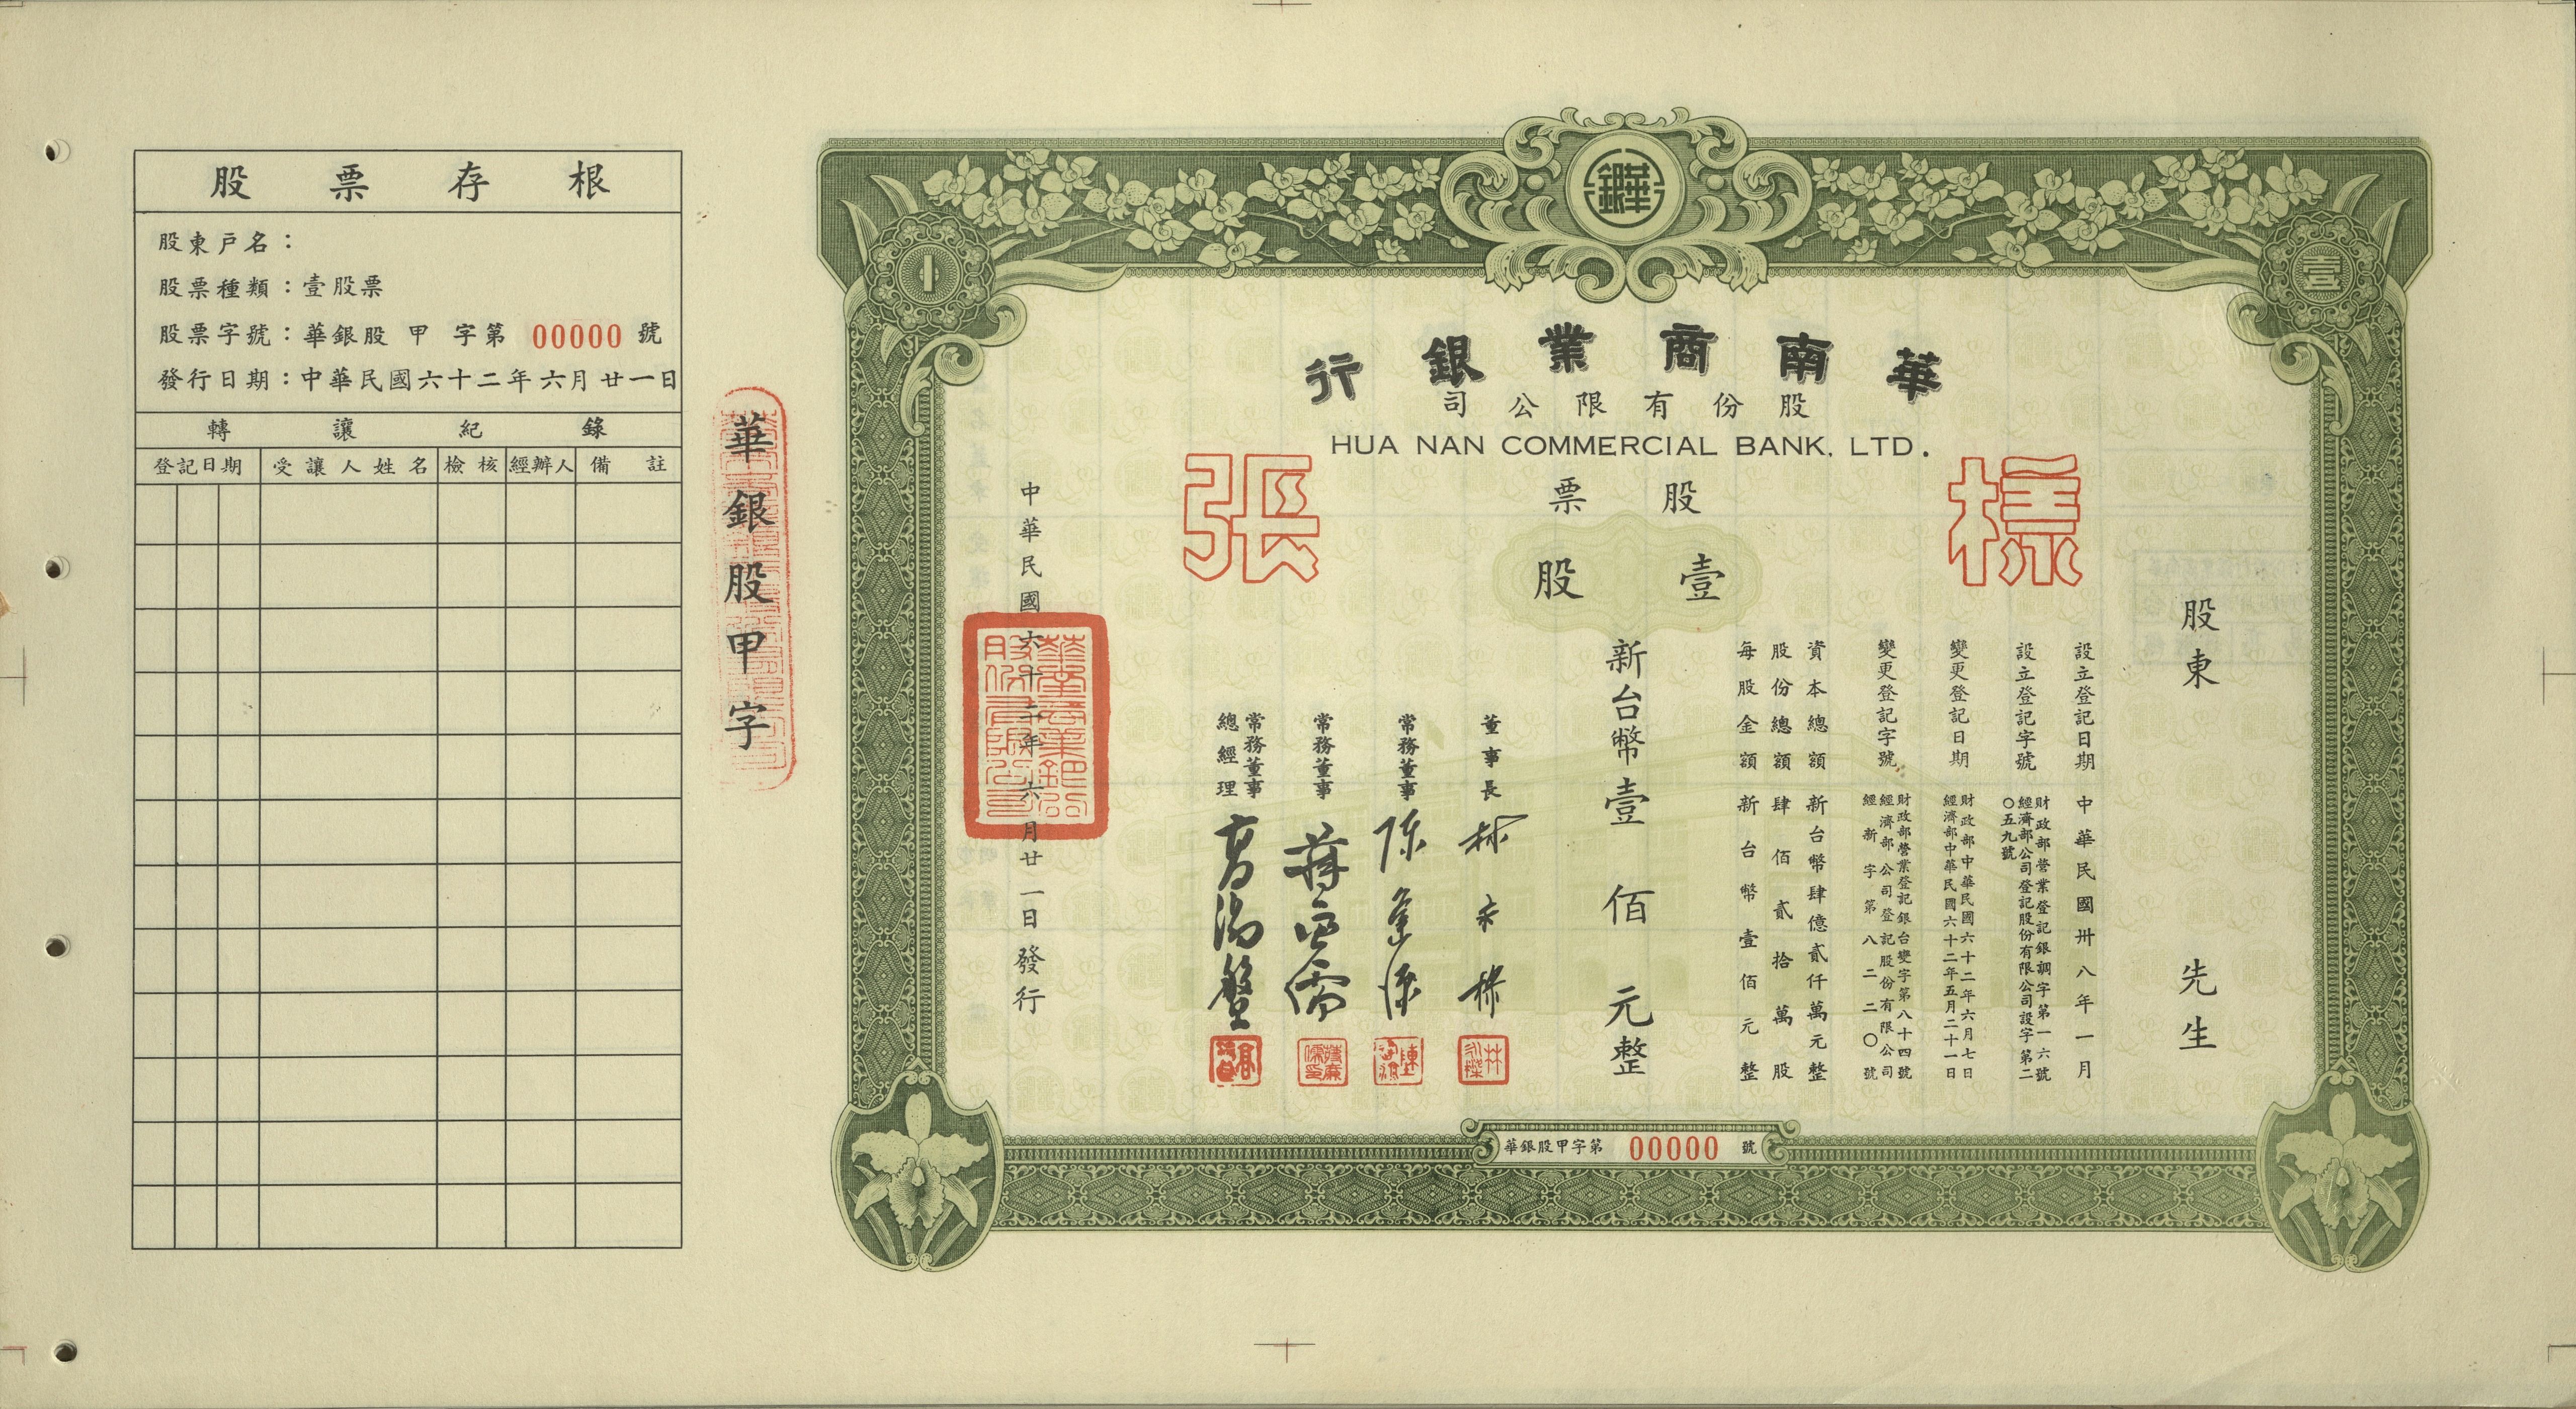 股票存根
股東戶名：
股票種類：壹股票
股票字號：華銀股 甲 字第 00000 號
發行日期：中華民國六十二年六月廿一日
轉讓紀錄
登記日期 受讓人姓名 檢核 經辦人 備註
華銀股甲字
華銀
壹
1
華南商業銀行
股份有限公司
HUA NAN COMMERCIAL BANK, LTD.
樣張
股票
壹股
股東 先生
設立登記日期 中華民國卅八年一月
設立登記字號 財政部營業登記銀調字第一六號
經濟部公司登記股份有限公司設字第二
〇五九號
變更登記日期 財政部中華民國六十二年六月七日
經濟部中華民國六十二年五月二十一日
變更登記字號 財政部營業登記銀台變字第八十四號
經濟部公司登記股份有限公司
經新字第八二二〇號
資本總額 新台幣肆億貳仟萬元整
股份總額 肆佰貳拾萬股
每股金額 新台幣壹佰元整
新台幣壹佰元整
董事長
常務董事
常務董事
常務董事
總經理
中華民國六十二年六月廿一日發行
華銀股甲字第 00000 號